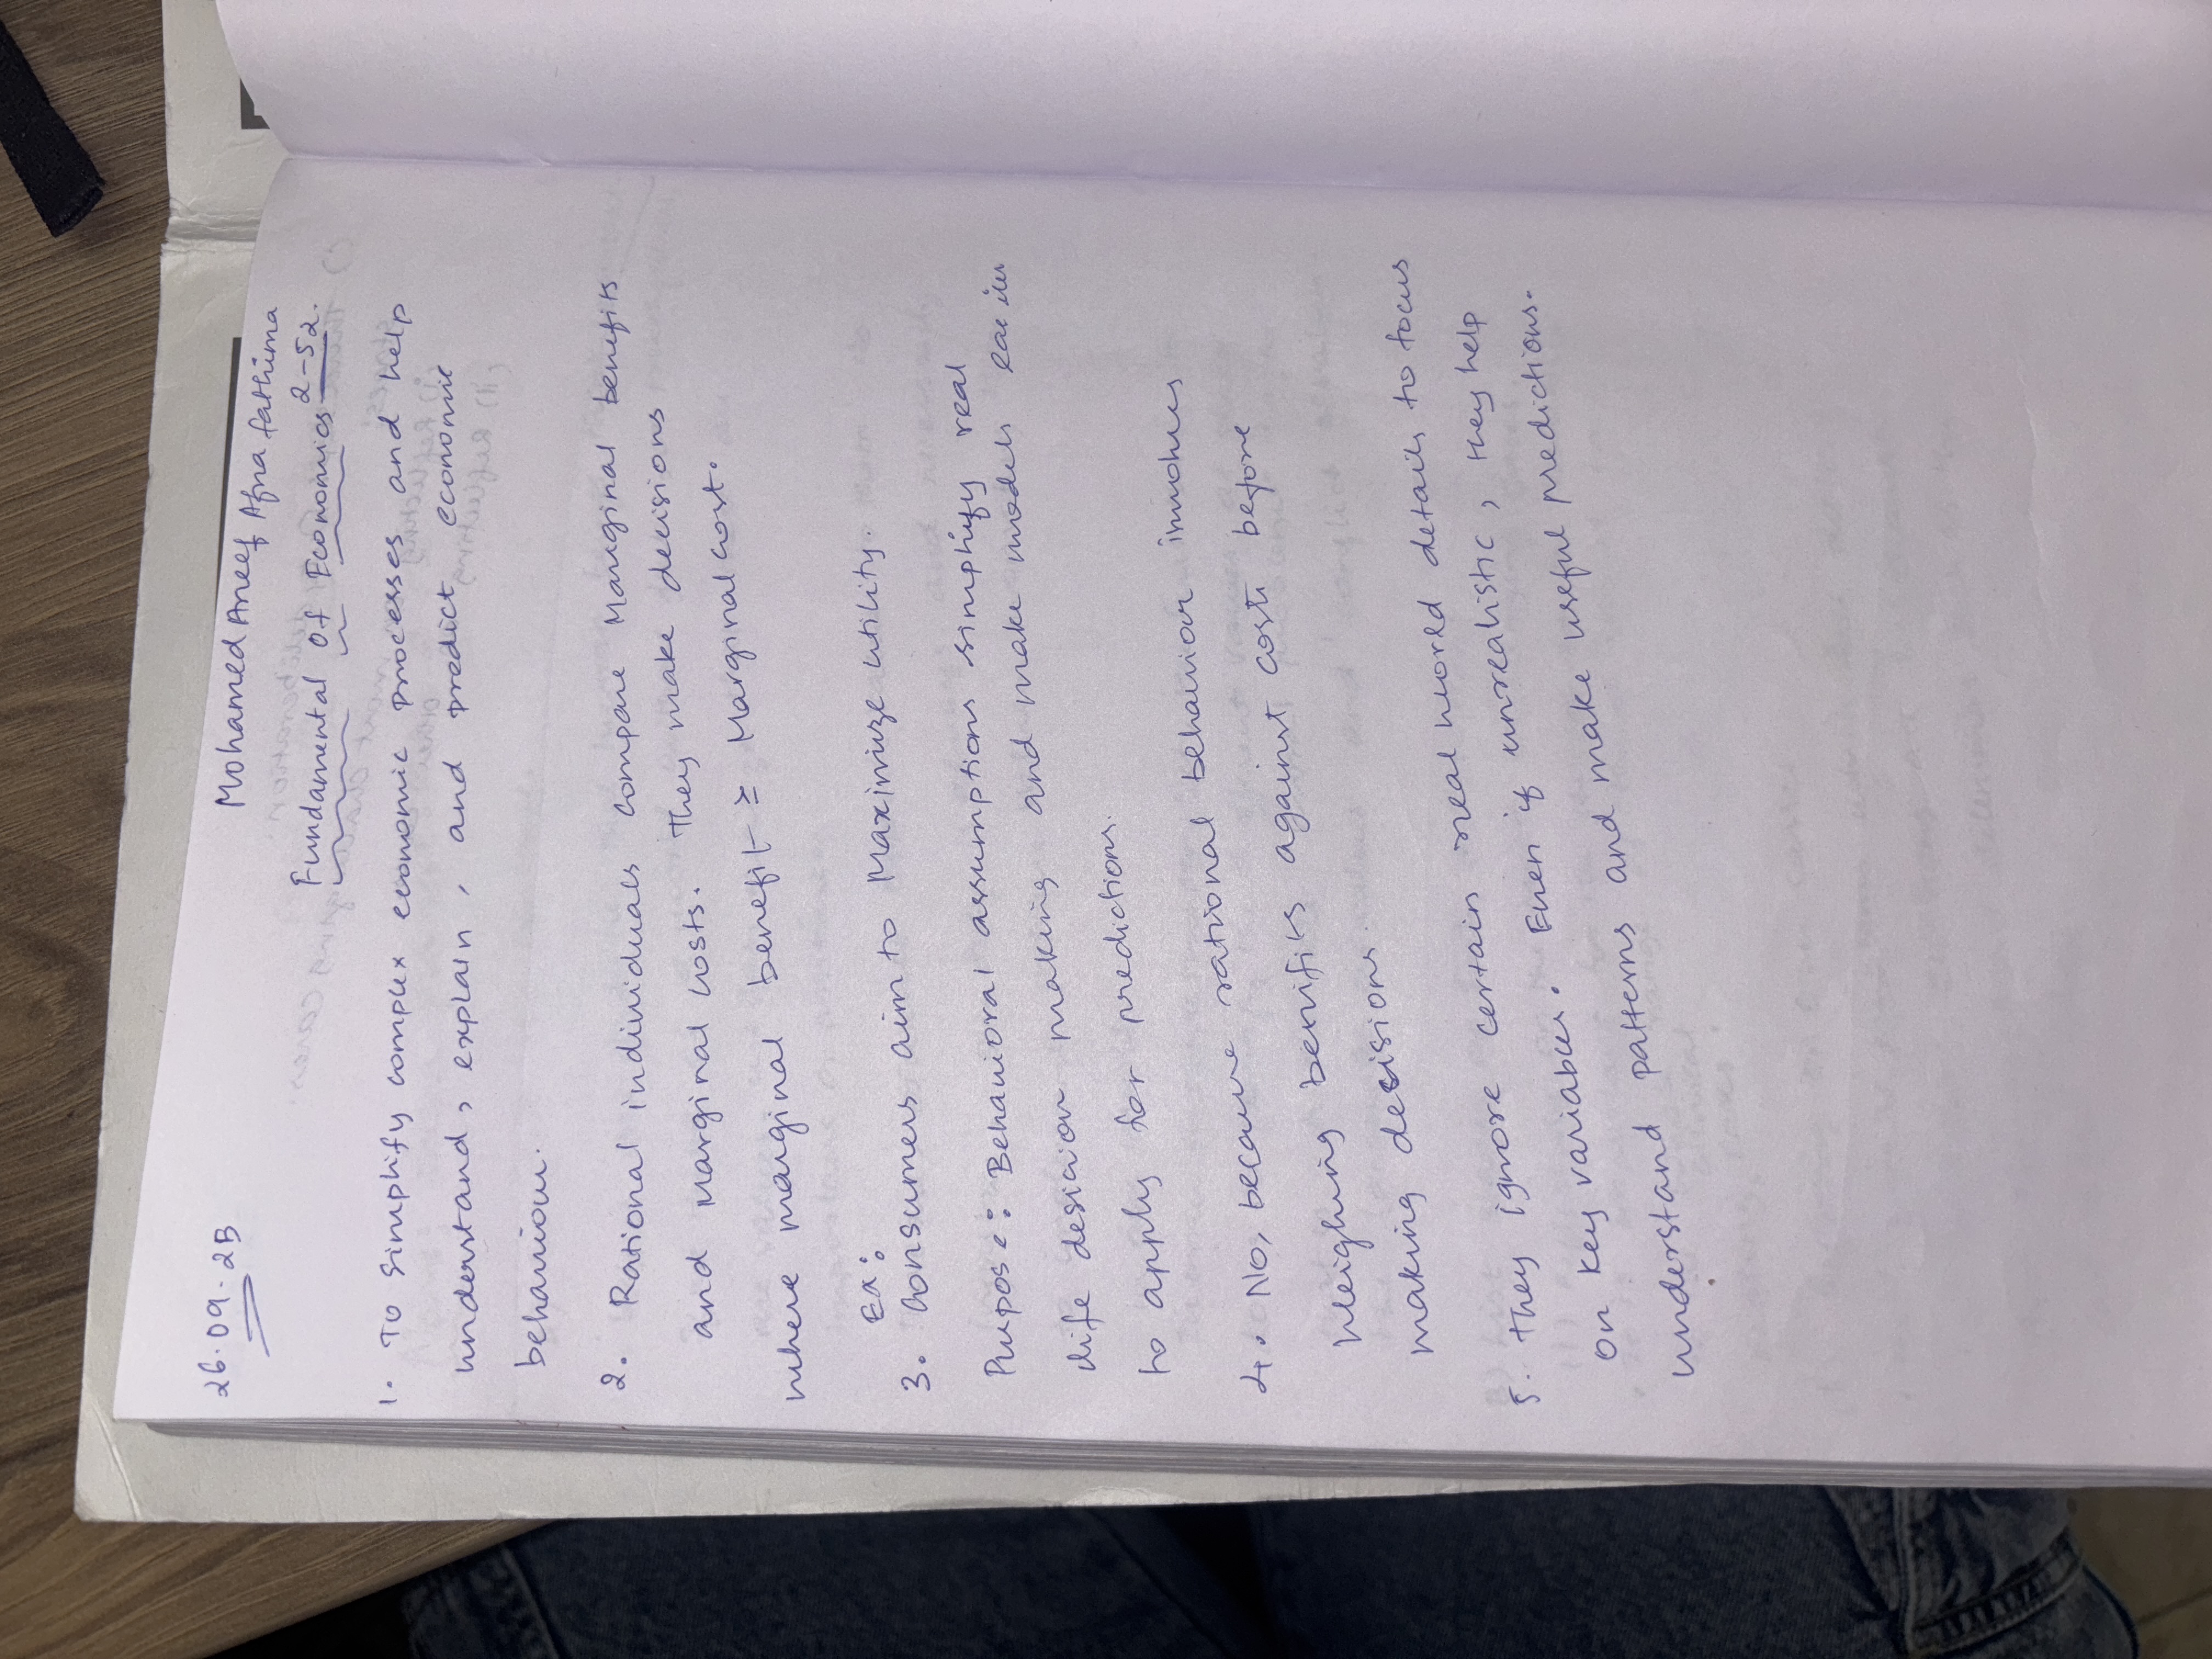 Mohamed Aneef Afna fathima
26.09.25
Fundamental Of Economics 2-52.
1. To simplify complex economic processes and help
understand, explain, and predict economic
behaviour.
2. Rational individuals compare Marginal benefits
and Marginal costs. They make decisions
where marginal benefit ≥ Marginal cost.
Ex:
3. Consumers aim to Maximize utility.
Purpose: Behavioral assumptions simplify real
life desicion making and make models
to apply for predictions.
4. No, because rational behaviour involves
Weighing benifits against costs before
making decisions.
5. They ignore certain real world details to focus
on key variables. Even if unrealistic, they help
understand patterns and make useful predictions.